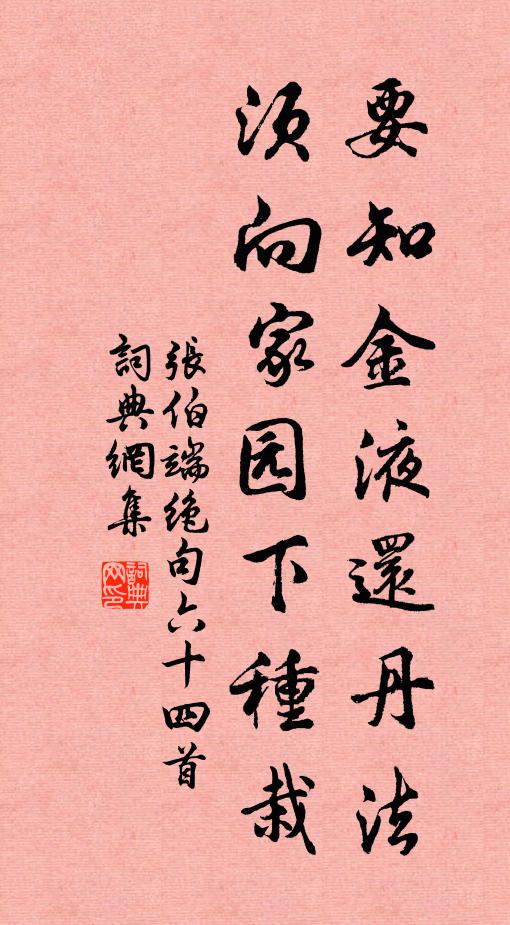 要知金液還丹法
須向家园下種栽
張伯端绝句六十四首
詞典網集
詞典网印